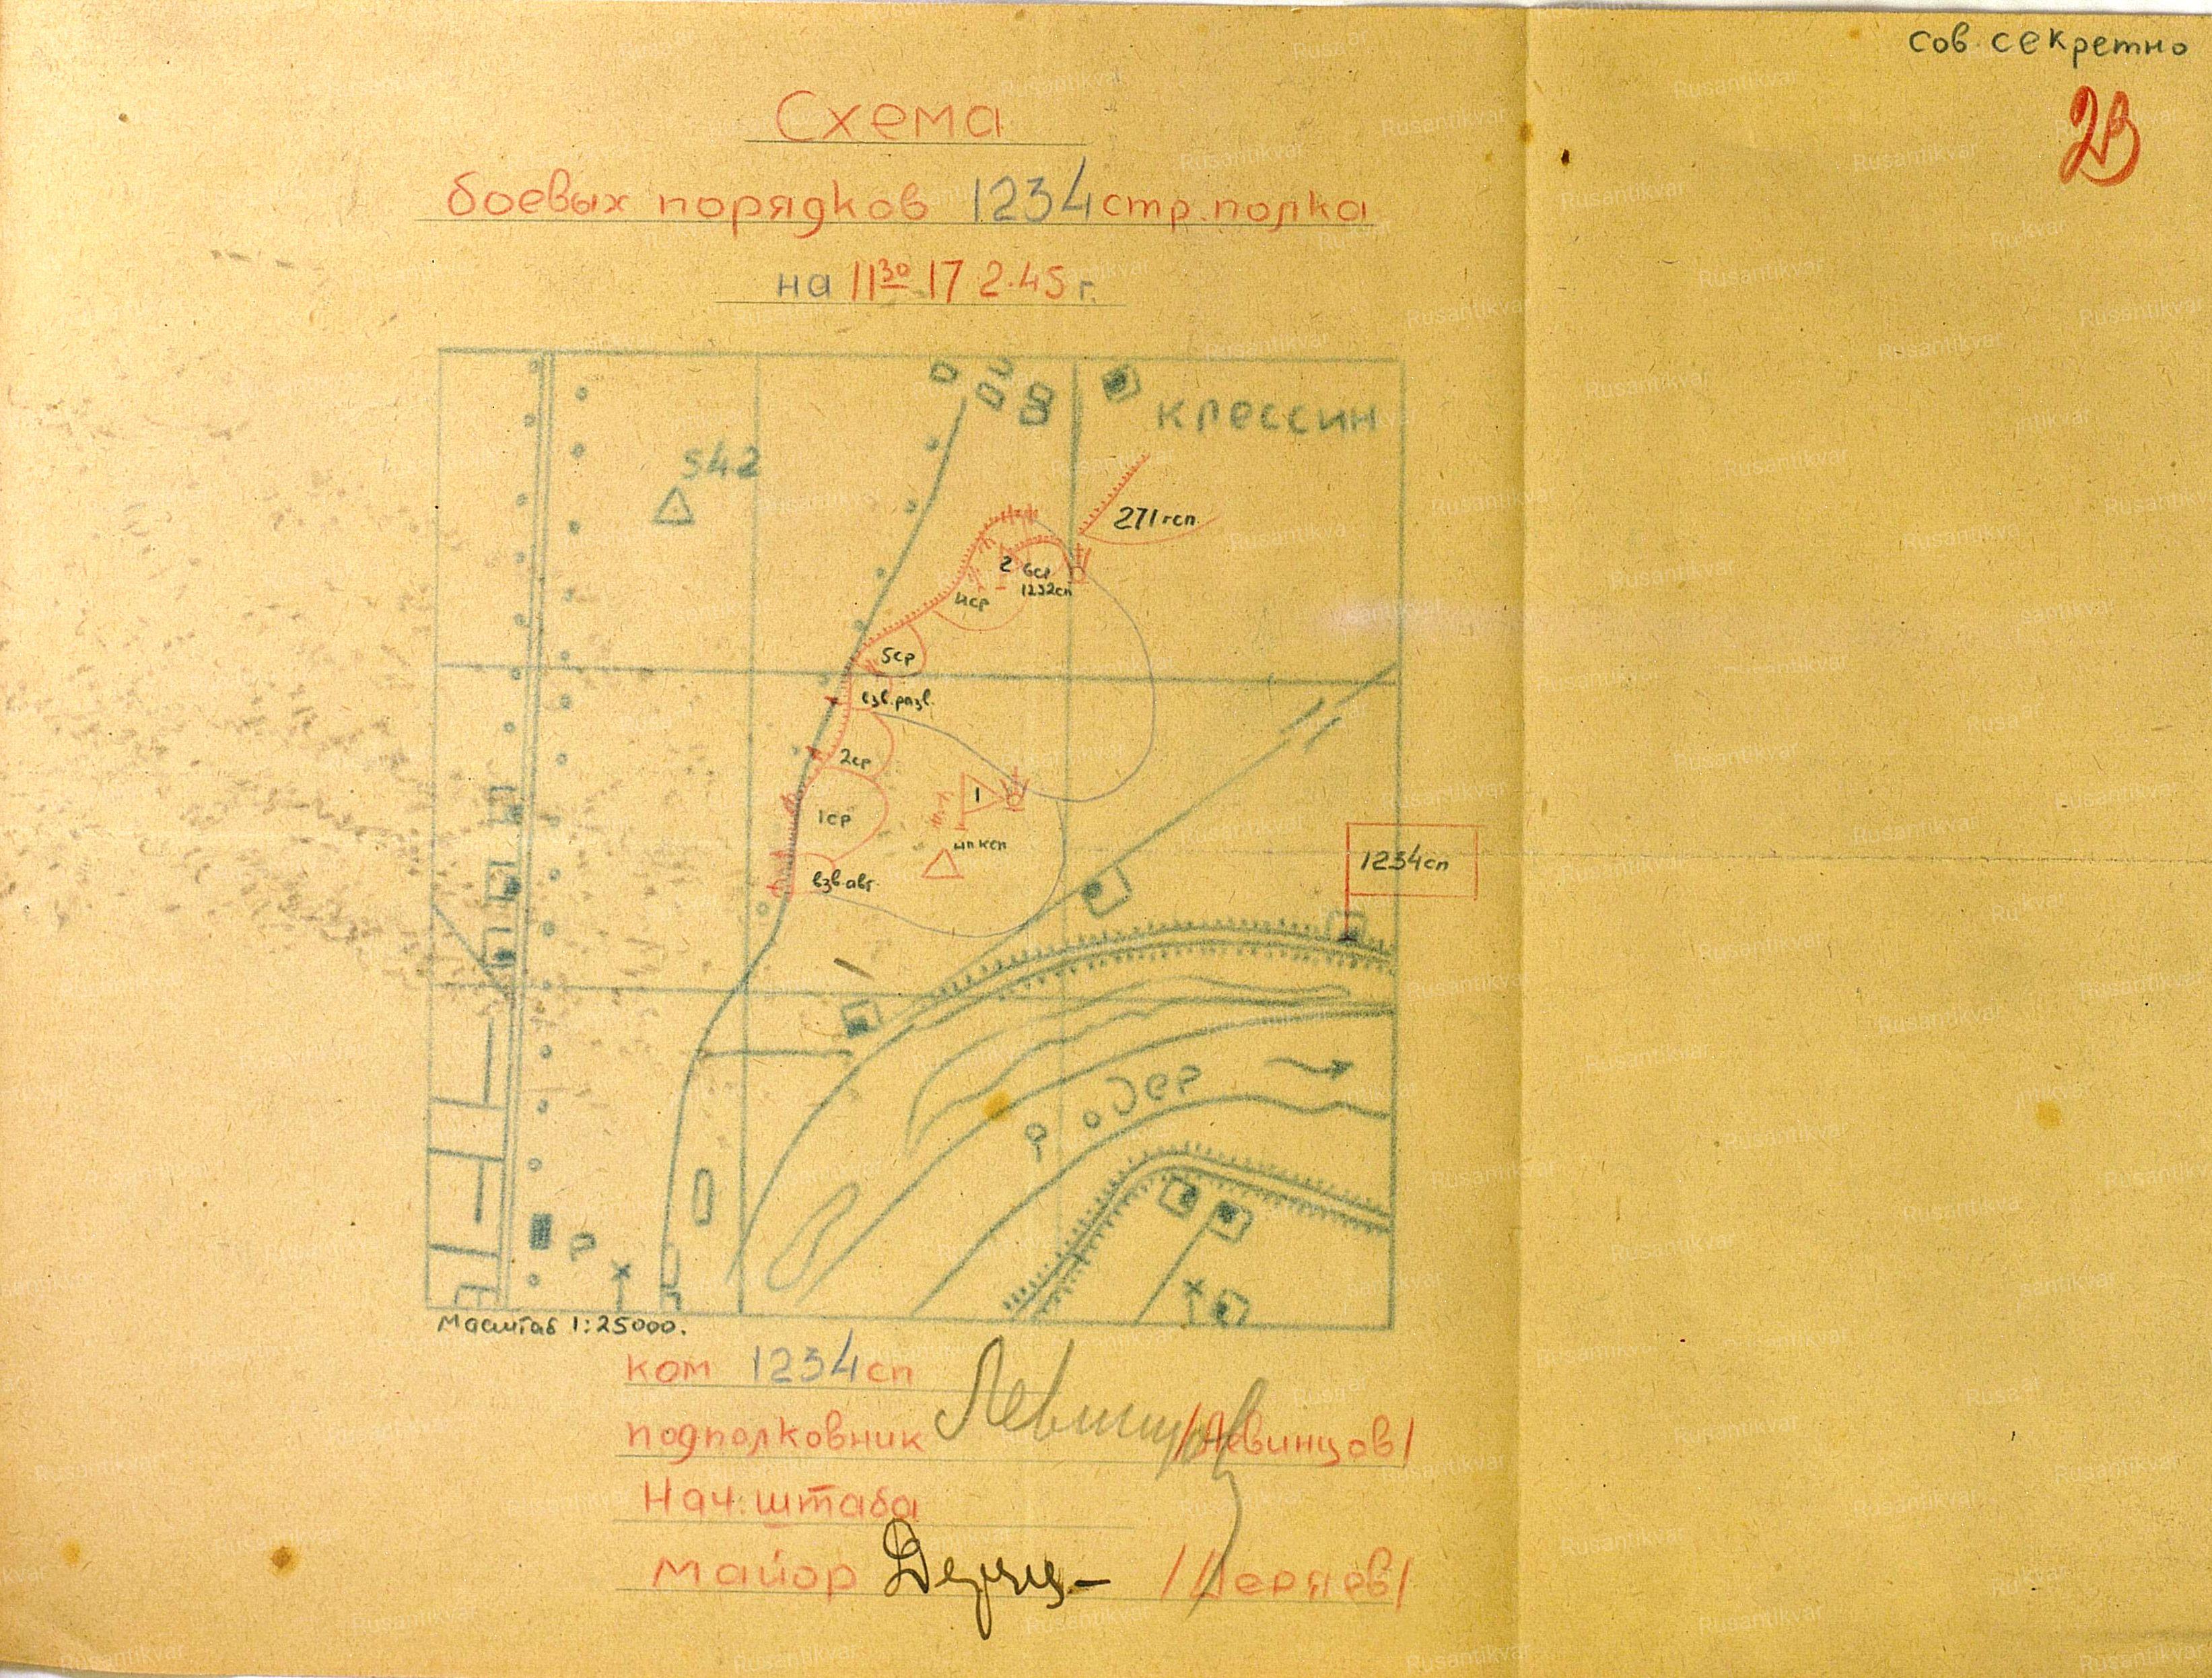 сов. секретно
23
Схема
боевых порядков 1234 стр. полка
на 11³⁰ 17 2.45 г.
Крессин
542
271 гсп
2
6ср
1232сп
4ср
5ср
взв. разв.
2ср
1
1ср
нп ксп
взв. авт.
1234сп
р. Одер
р
Масштаб 1:25000.
ком 1234 сп
подполковник Левинцов /Левинцов/
Нач. штаба
майор
Rusantikvar